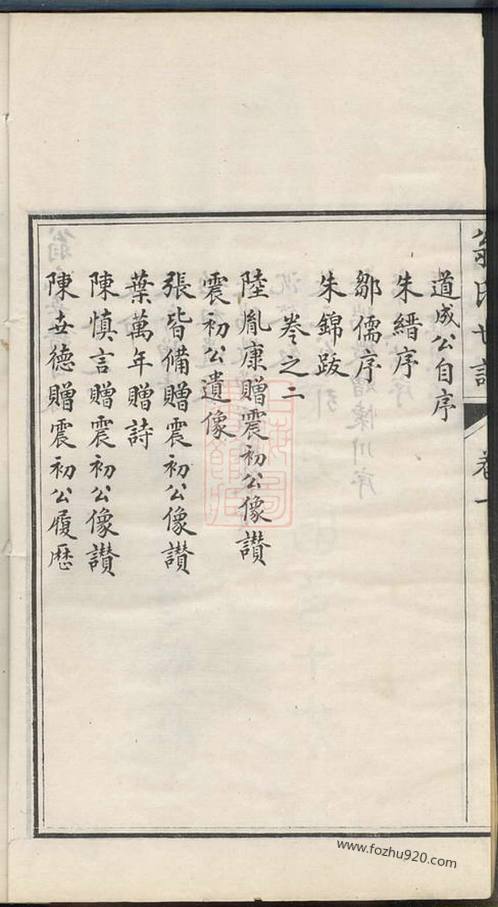 翁氏世譜 卷一
道成公自序
朱縉序
鄒儒序
朱錦跋
卷之二
陸胤康贈震初公像讃
震初公遺像
張皆備贈震初公像讃
葉萬年贈詩
陳慎言贈震初公像讃
陳世德贈震初公履歷
www.fozhu920.com